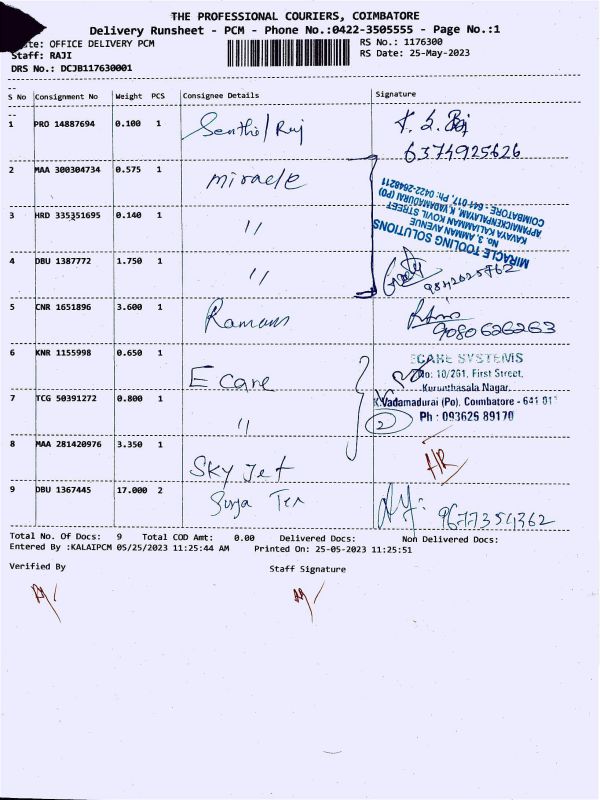 THE PROFESSIONAL COURIERS, COIMBATORE
Delivery Runsheet - PCM - Phone No.:0422-3505555 - Page No.:1
OFFICE DELIVERY PCM
RS No.: 1176300
Staff: RAJI
RS Date: 25-May-2023
DRS No.: DCJB117630001
S No Consignment No Weight PCS Consignee Details Signature
1 PRO 14887694 0.100 1 Senthil Raj
6374925626
2 MAA 300304734 0.575 1 miracle
3 HRD 335351695 0.140 1 "
MIRACLE TOOLING SOLUTIONS
NO. 3, AMMAN AVENUE
KAVAYA KALIAMMAN KOVIL STREET
APPANAICKENPALAYAM, K.VADAMADURAI (PO)
COIMBATORE - 641 017. Ph: 0422-2648211
4 DBU 1387772 1.750 1 "
9842625762
5 CNR 1651896 3.600 1 Ramans
9080626263
6 KNR 1155998 0.650 1 E care
ECARE SYSTEMS
No: 10/261, First Street,
Kurunthasala Nagar,
7 TCG 50391272 0.800 1 "
K.Vadamadurai (Po), Coimbatore - 641 017
Ph : 093626 89170
2
8 MAA 281420976 3.350 1 SKY Jet
9 DBU 1367445 17.000 2 Surja Tex
9677354362
Total No. Of Docs: 9 Total COD Amt: 0.00 Delivered Docs: Non Delivered Docs:
Entered By :KALAIPCM 05/25/2023 11:25:44 AM Printed On: 25-05-2023 11:25:51
Verified By
Staff Signature